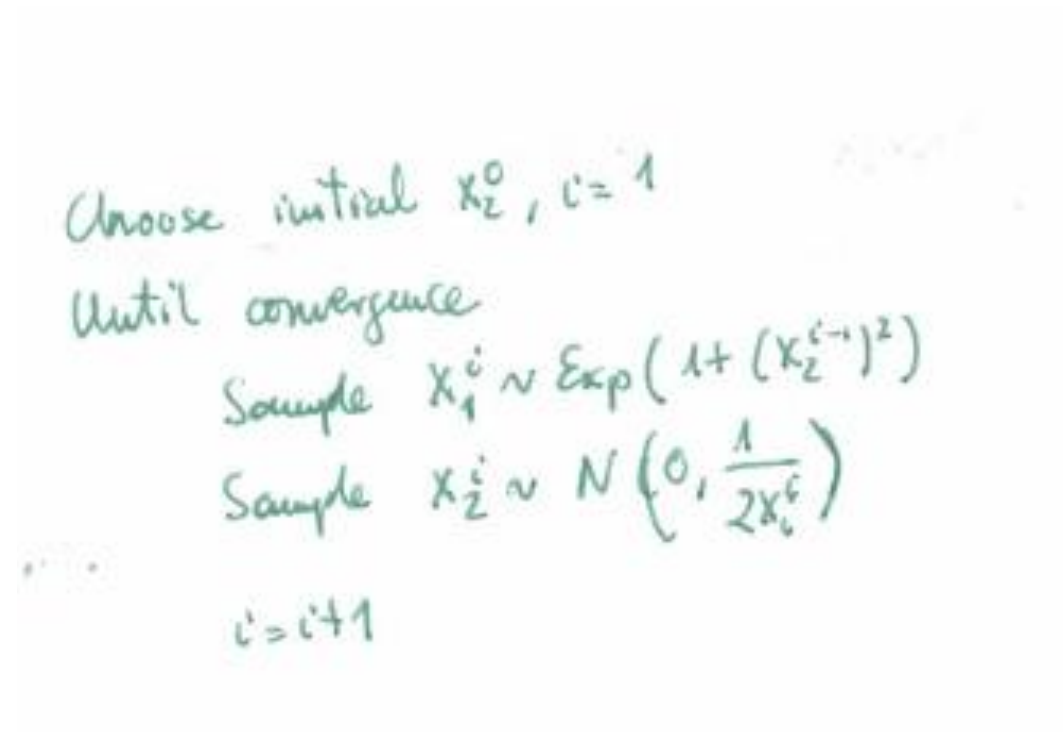 Choose initial x₂⁰, i = 1
Until convergence
Sample x₁ⁱ ~ Exp(1 + (x₂ⁱ⁻¹)²)
Sample x₂ⁱ ~ N(0, 1/(2x₁ⁱ))
i = i+1